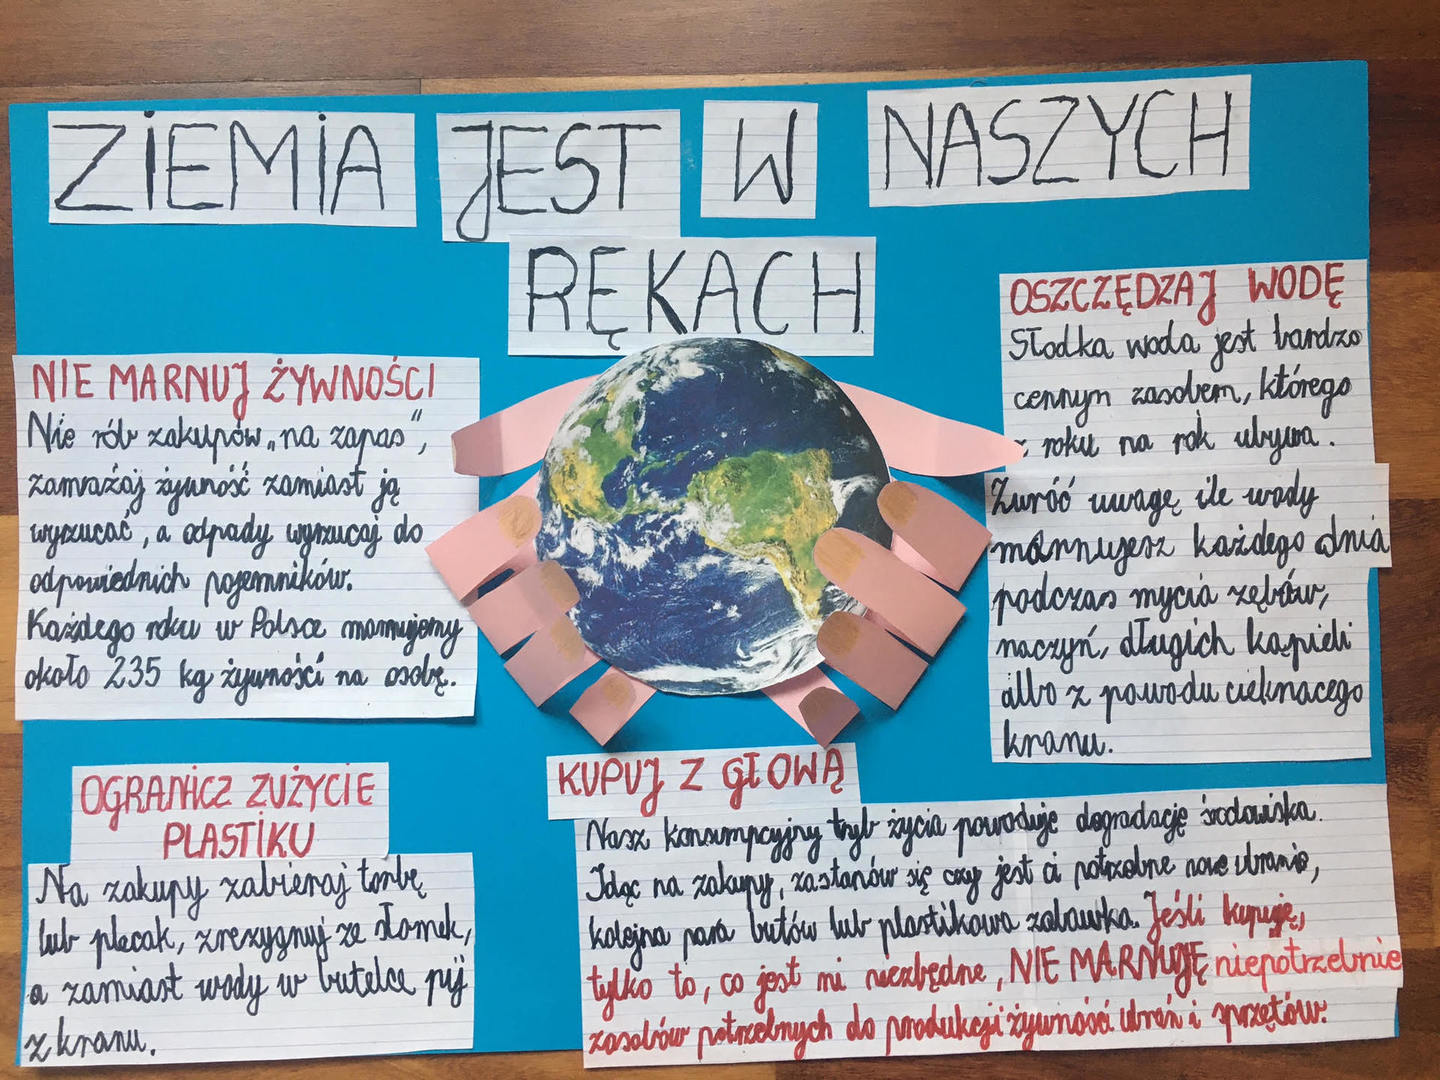 ZIEMIA JEST W NASZYCH
RĘKACH
NIE MARNUJ ŻYWNOŚCI
Nie rób zakupów „na zapas”,
zamrażaj żywność zamiast ją
wyrzucać, a odpady wyrzucaj do
odpowiednich pojemników.
Każdego roku w Polsce marnujemy
około 235 kg żywności na osobę.
OSZCZĘDZAJ WODĘ
Słodka woda jest bardzo
cennym zasobem, którego
z roku na rok ubywa.
Zwróć uwagę ile wody
marnujesz każdego dnia
podczas mycia zębów,
naczyń, długich kąpieli
albo z powodu cieknącego
kranu.
OGRANICZ ZUŻYCIE
PLASTIKU
Na zakupy zabieraj torbę
lub plecak, zrezygnuj ze słomek,
a zamiast wody w butelce pij
z kranu.
KUPUJ Z GŁOWĄ
Nasz konsumpcyjny tryb życia powoduje degradację środowiska.
Idąc na zakupy, zastanów się czy jest ci potrzebne nowe ubranie,
kolejna para butów lub plastikowa zabawka. Jeśli kupuję,
tylko to, co jest mi niezbędne, NIE MARNUJĘ niepotrzebnie
zasobów potrzebnych do produkcji żywności ubrań i sprzętów.